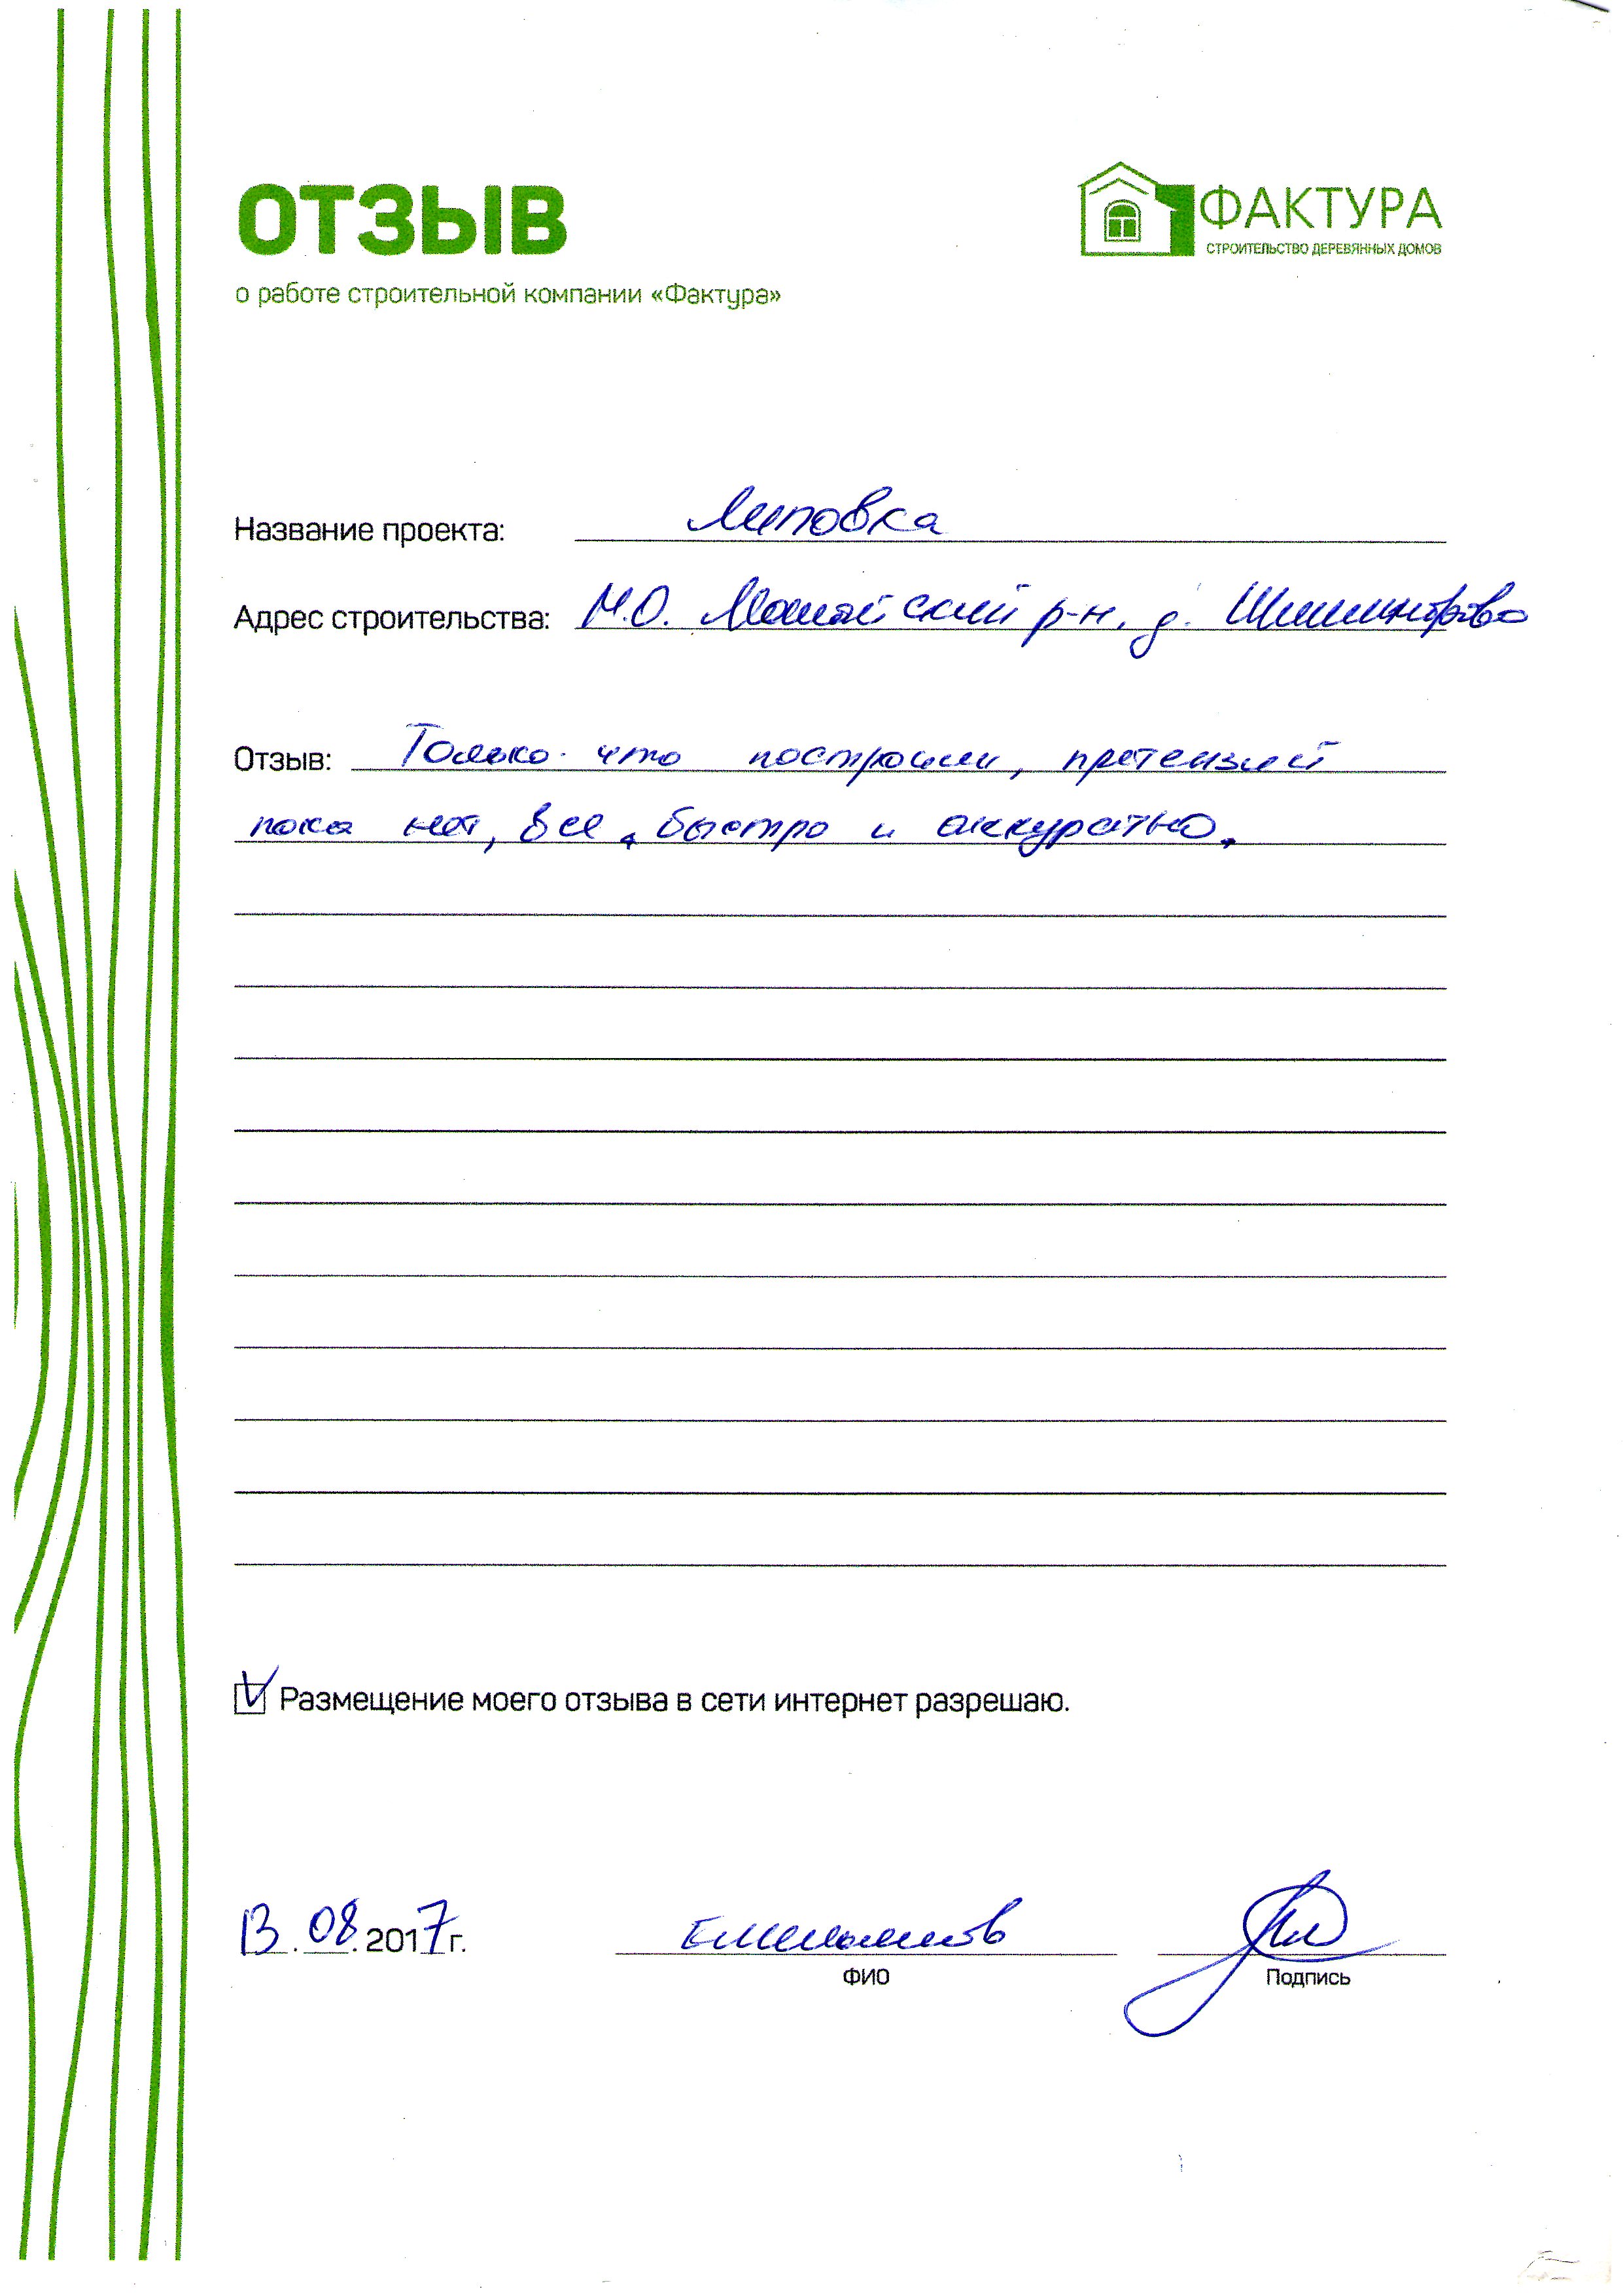 ОТЗЫВ
о работе строительной компании «Фактура»
ФАКТУРА
СТРОИТЕЛЬСТВО ДЕРЕВЯННЫХ ДОМОВ
Название проекта: Липовка
Адрес строительства: М.О. Можайский р-н. д.
Отзыв: Только что построили, претензий
пока нет, все быстро и аккуратно.
Размещение моего отзыва в сети интернет разрешаю.
13.08.2017г.
Емельянов
ФИО
Подпись